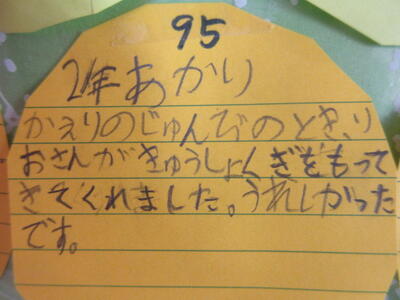 95
2年あかり
かえりのじゅんびのとき、り
おさんがきゅうしょくぎをもって
きてくれました。うれしかった
です。